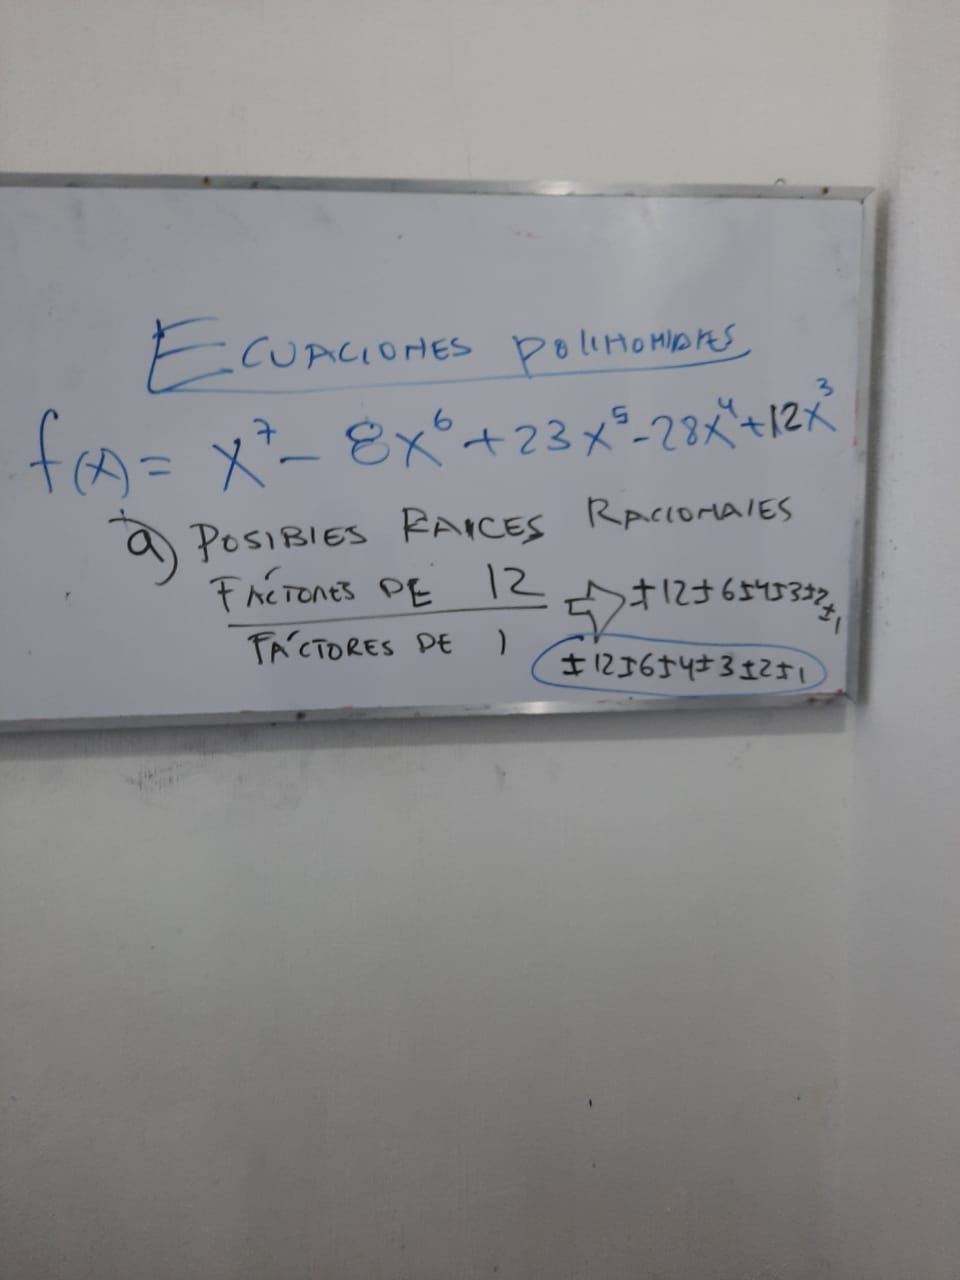 ECUACIONES POLINOMIALES
f(x) = x⁷ - 8x⁶ + 23x⁵ - 28x⁴ + 12x³
a) POSIBLES RAICES RACIONALES
FÁCTORES DE 12 ⇒ ±12 ±6 ±4 ±3 ±2 ±1
FÁCTORES DE 1
±12 ±6 ±4 ±3 ±2 ±1